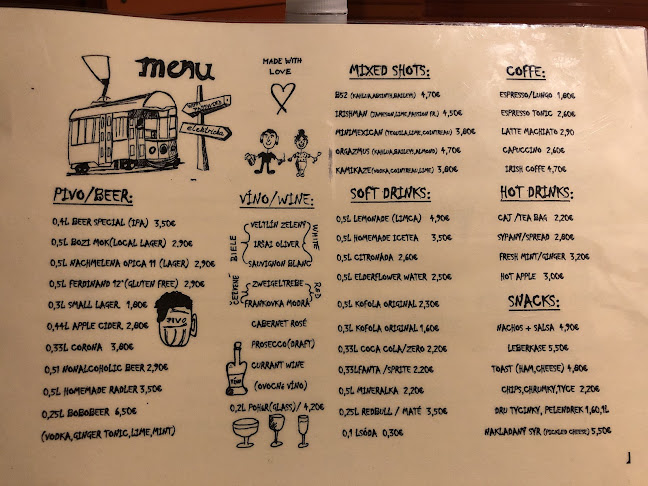 menu
električka
MADE WITH
LOVE
PIVO/BEER:
0,4L BEER SPECIAL (IPA) 3,50€
0,5L BOZI MOK(LOCAL LAGER) 2,90€
0,5L NACHMELENA OPICA 11 (LAGER) 2,90€
0,5L FERDINAND 12°(GLUTEN FREE) 2,90€
0,3L SMALL LAGER 1,80€
0,44L APPLE CIDER, 2,80€
0,33L CORONA 3,80€
0,5l NONALCOHOLIC BEER 2,90€
0,5L HOMEMADE RADLER 3,50€
0,25L BOBOBEER 6,50€
(VODKA,GINGER TONIC,LIME,MINT)
PIVO
VÍNO/WINE:
BIELE
VELTLÍN ZELENÝ
IRSAI OLIVER
SAUVIGNON BLANC
WHITE
ČERVENÉ
ZWEIGELTREBE
FRANKOVKA MODRÁ
RED
CABERNET ROSÉ
PROSECCO(DRAFT)
CURRANT WINE
(OVOCNé VÍNO)
0,2L POHáR(GLASS)/ 4,20€
MIXED SHOTS:
B52 (KAHLUA,ABSINTH,BAILEYS) 4,70€
IRISHMAN (JAMESON,LIME,PASSION FR.) 4,50€
MINIMEXICAN (TEQUILA,LIME,COINTREAU) 3,80€
ORGAZMUS (KAHLUA,BAILEYS,ALMOND) 4,70€
KAMIKAZE(VODKA,COINTREAU,LIME) 3,80€
SOFT DRINKS:
0,5L LEMONADE (LIMCA) 4,90€
0,5L HOMEMADE ICETEA 3,50€
0,5L CITRONáDA 2,60€
0,5L ELDERFLOWER WATER 2,50€
0,5L KOFOLA ORIGINAL 2,30€
0,3L KOFOLA ORIGINAL 1,60€
0,33L COCA COLA/ZERO 2,20€
0,33LFANTA /SPRITE 2,20€
0,5L MINERALKA 2,20€
0,25L REDBULL / MATé 3,50€
0,1 LSóDA 0,30€
COFFE:
ESPRESSO/LUNGO 1,80€
ESPRESSO TONIC 2,60€
LATTE MACHIATO 2,90
CAPUCCINO 2,60€
IRISH COFFE 4,70€
HOT DRINKS:
CAJ /TEA BAG 2,20€
SYPANY/SPREAD 2,80€
FRESH MINT/GINGER 3,20€
HOT APPLE 3,00€
SNACKS:
NACHOS + SALSA 4,90€
LEBERKASE 5,50€
TOAST (HAM,CHEESE) 4,80€
CHIPS,CHRUMKY,TYCE 2,20€
DRU TYCINKY, PELENDREK 1,60,1L
NAKLADANÝ SYR (PICKLED CHEESE) 5,50€
1